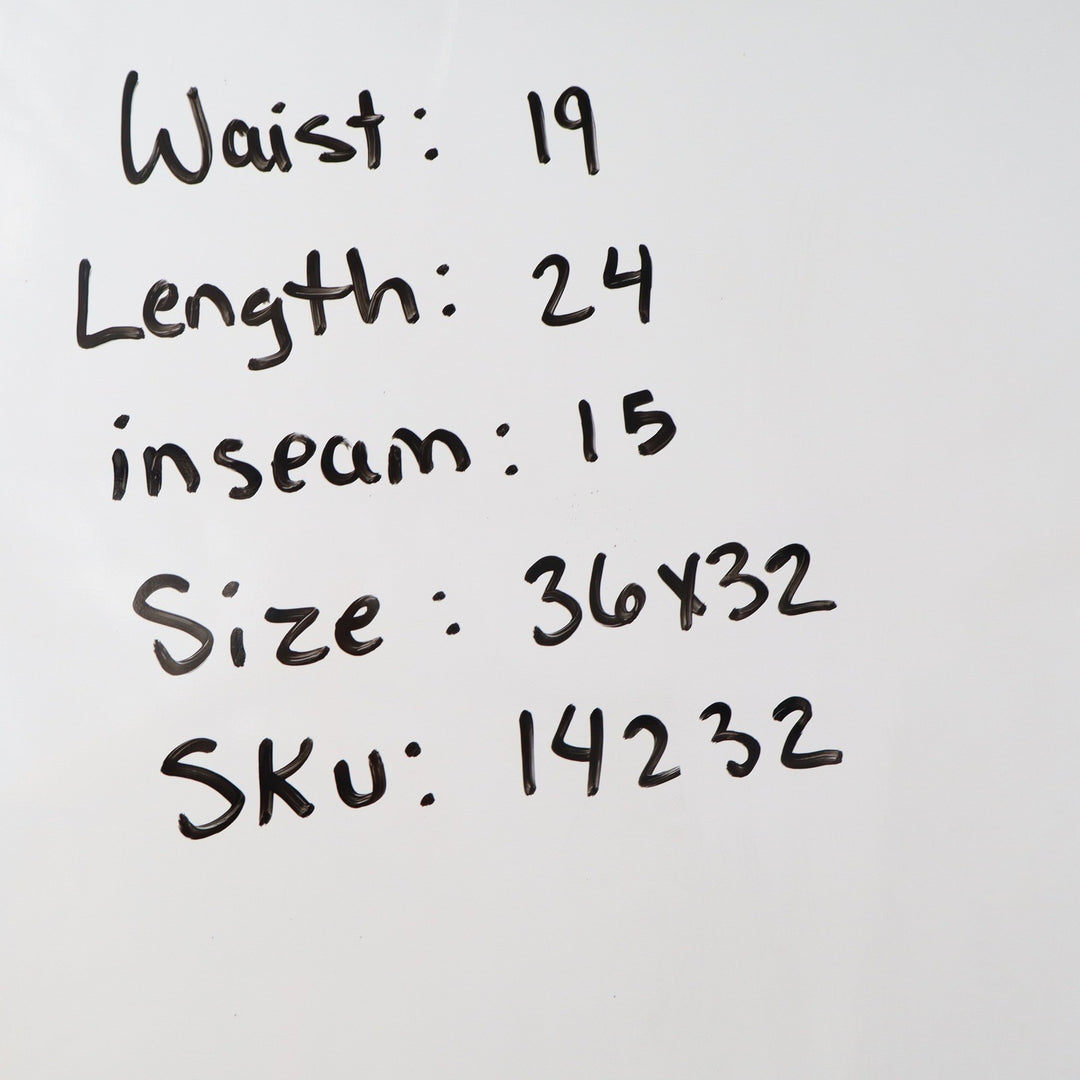 Waist: 19
Length: 24
inseam: 15
Size: 36x32
SKU: 14232